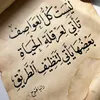 ليست كل العواصف
تأتي لعرقلة الحياة
بعضها يأتي لتنظيف الطريق